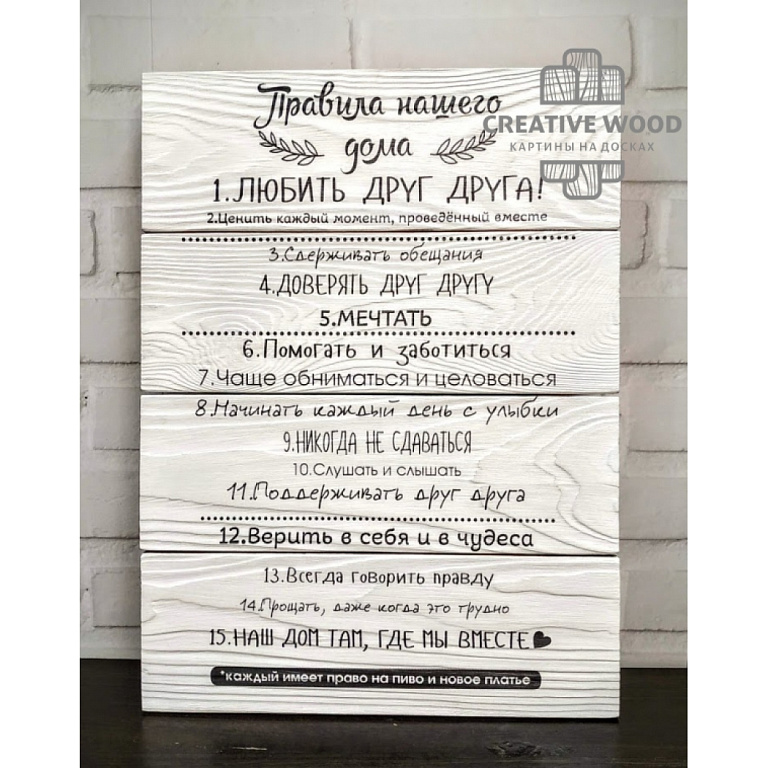 Правила нашего
дома
CREATIVE WOOD
КАРТИНЫ НА ДОСКАХ
1.ЛЮБИТЬ ДРУГ ДРУГА!
2.Ценить каждый момент, проведённый вместе
3.Сдерживать обещания
4.ДОВЕРЯТЬ ДРУГ ДРУГУ
5.МЕЧТАТЬ
6.Помогать и заботиться
7.Чаще обниматься и целоваться
8.Начинать каждый день с улыбки
9.НИКОГДА НЕ СДАВАТЬСЯ
10.Слушать и слышать
11.Поддерживать друг друга
12.Верить в себя и в чудеса
13.Всегда говорить правду
14.Прощать, даже когда это трудно
15.НАШ ДОМ ТАМ, ГДЕ МЫ ВМЕСТЕ
*каждый имеет право на пиво и новое платье